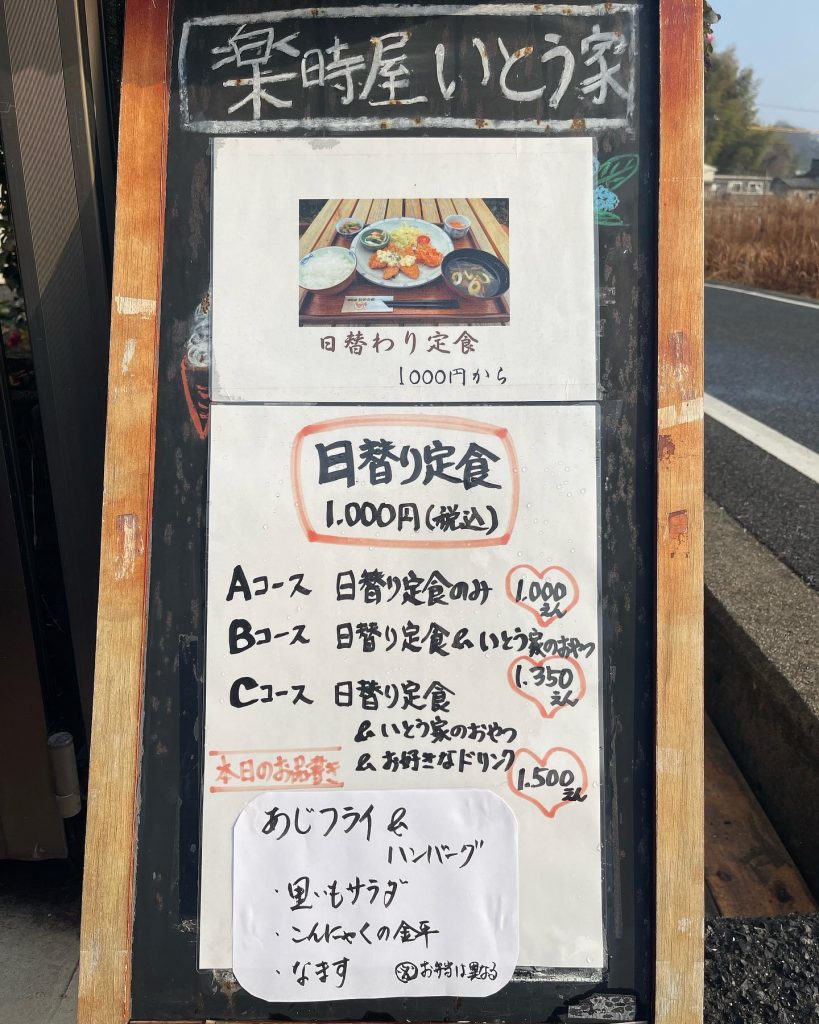 楽時屋いとう家
日替わり定食
1000円から
日替り定食
1.000円(税込)
Aコース 日替り定食のみ 1.000えん
Bコース 日替り定食&いとう家のおやつ
1.350えん
Cコース 日替り定食
&いとう家のおやつ
&お好きなドリンク
1.500えん
本日のお品書き
あじフライ&
ハンバーグ
・里いもサラダ
・こんにゃくの金平
・なます ※お弁当は異なる